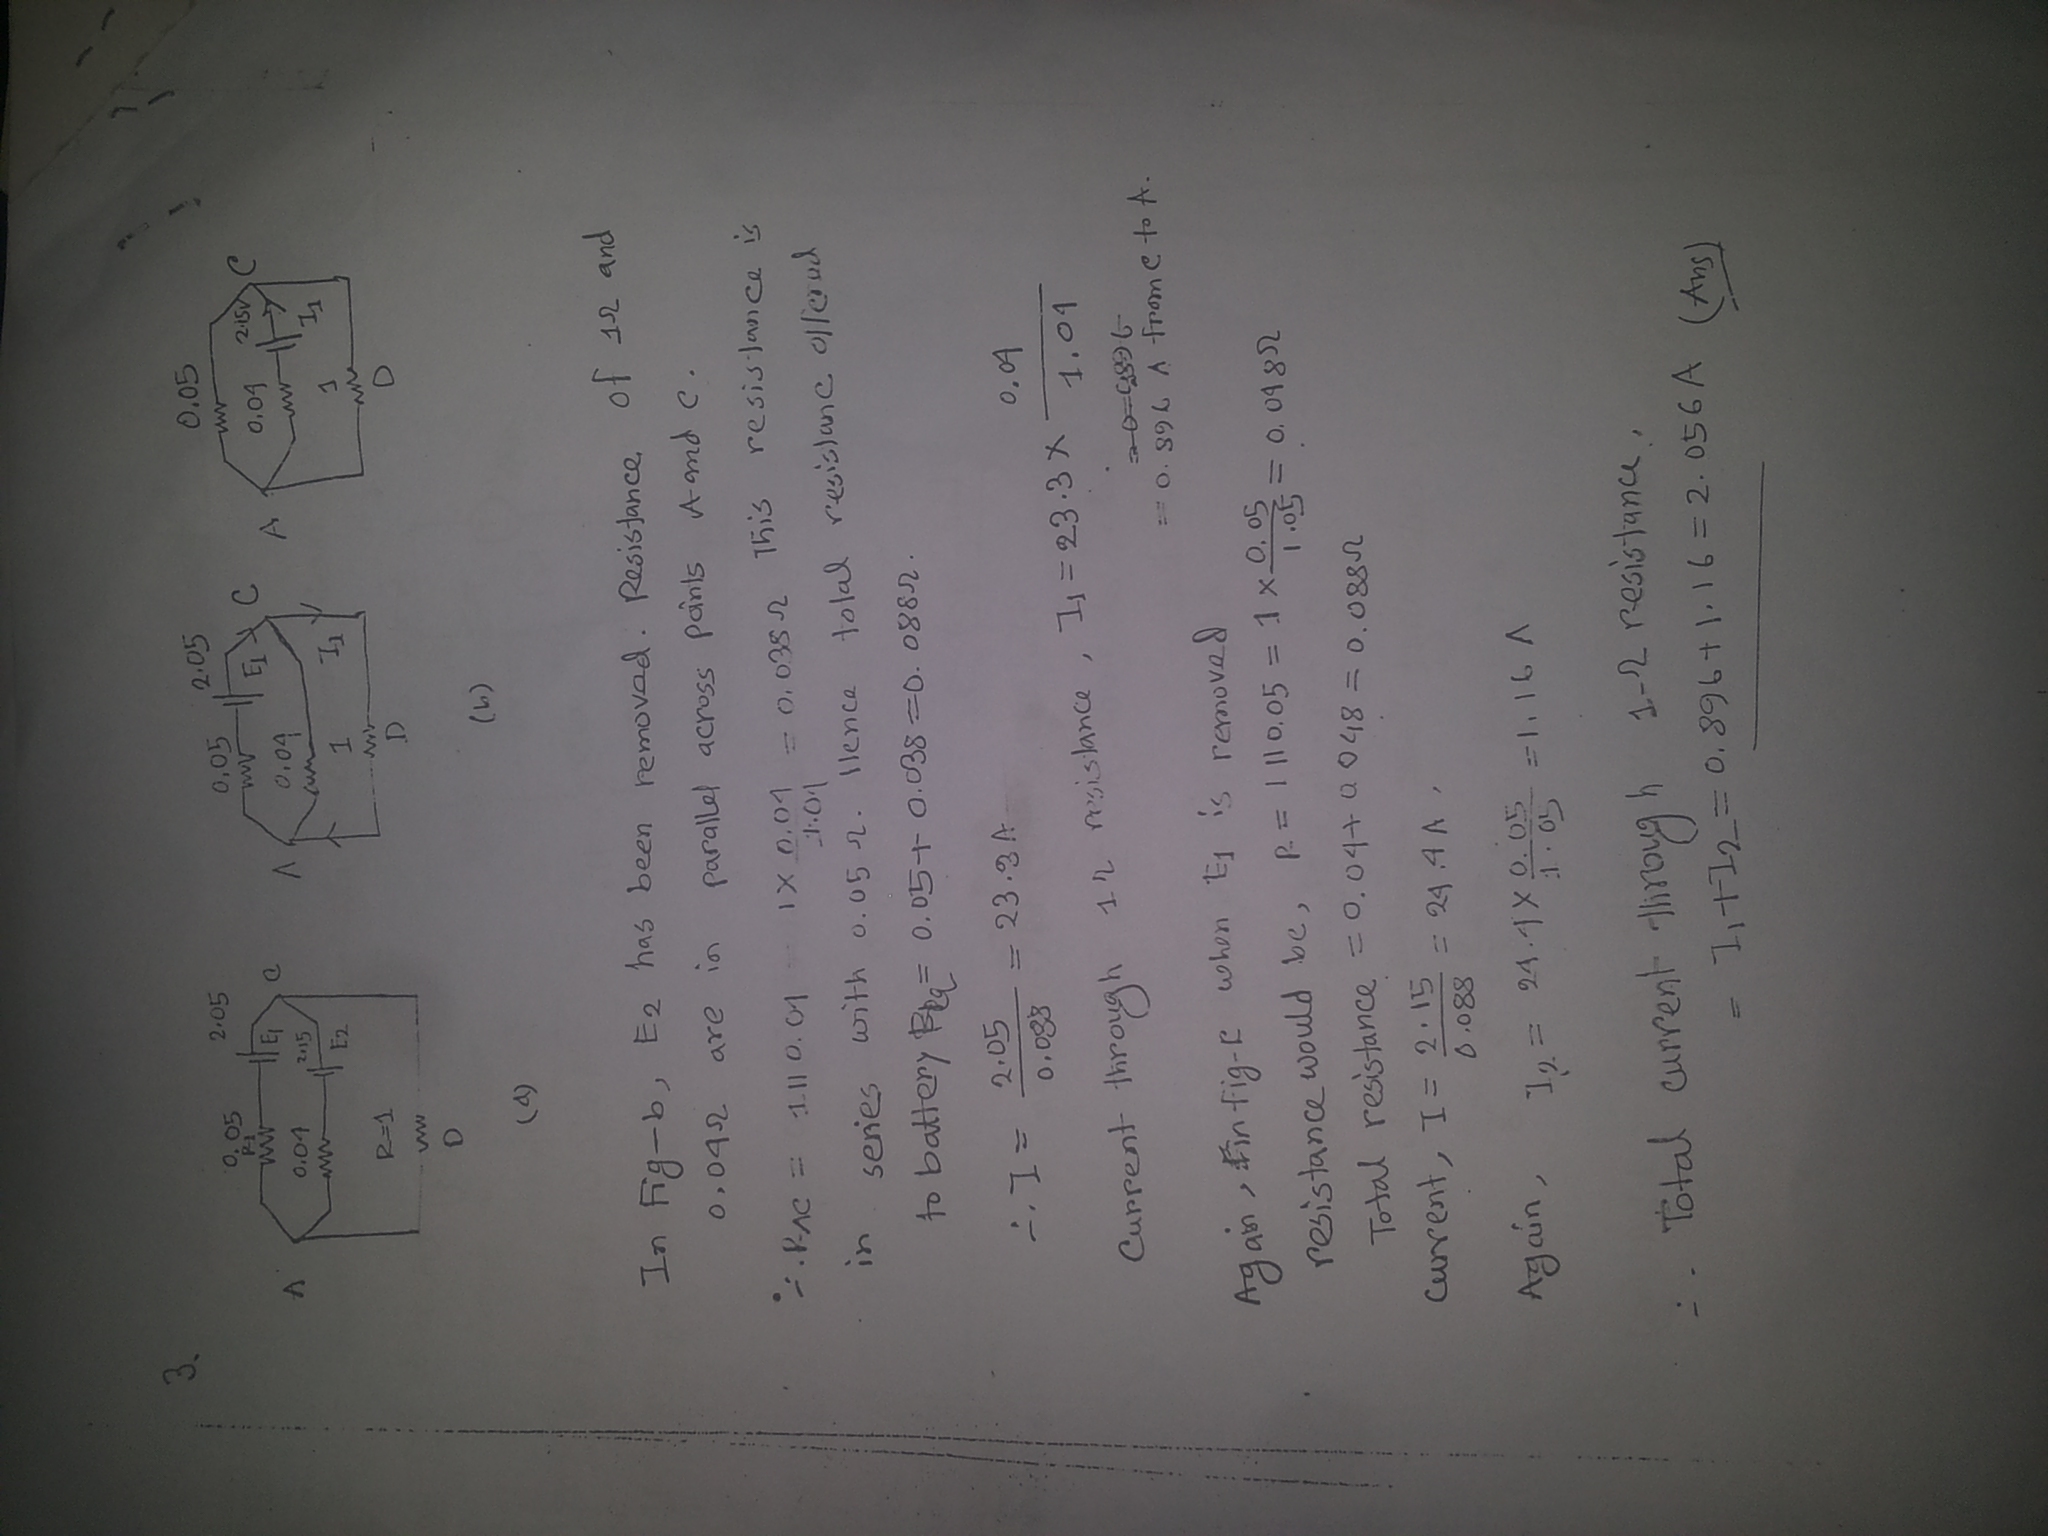 3.
0.05 2.05
R1
E1
A C
0.04 2.15
E2
R=1
D
(a)
0.05 2.05
E1
A C
0.04
1 I1
D
(b)
0.05
0.04 2.15V
A C
I1
1
D
In Fig-b, E2 has been removed. Resistance of 1Ω and
0.04Ω are in parallel across points A and C.
∴ RAC = 1||0.04 = 1×0.04/1.04 = 0.038Ω This resistance is
in series with 0.05Ω. Hence total resistanc offered
to battery Req = 0.05+0.038=0.088Ω.
∴ I = 2.05/0.088 = 23.3A
Current through 1Ω resistance, I1 = 23.3 × 0.04/1.04
= 0.896 A from C to A.
Again, in fig-c when E1 is removed
resistance would be, R = 1||0.05 = 1×0.05/1.05 = 0.048Ω
Total resistance = 0.04+0.048 = 0.088Ω
Current, I = 2.15/0.088 = 24.4A,
Again, I2 = 24.4×0.05/1.05 = 1.16 A
∴ Total current through 1-Ω resistance,
= I1+I2 = 0.896+1.16 = 2.056A (Ans)